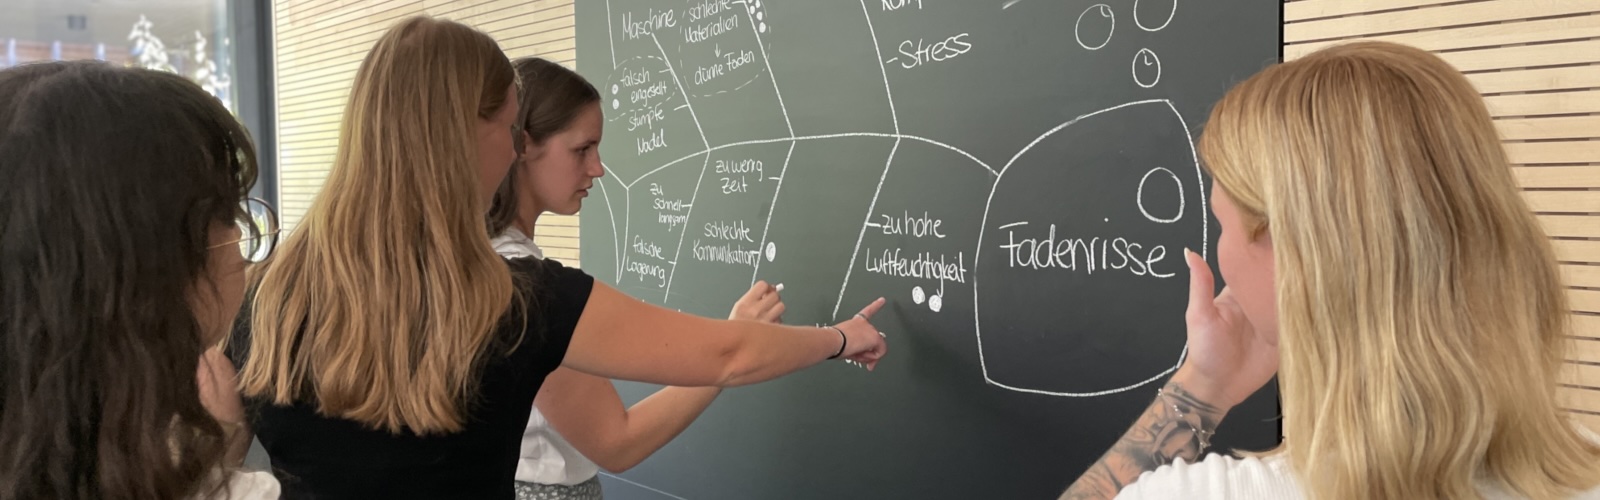 Maschine
falsch
eingestellt
stumpfe
Nadel
schlechte
Materialien
dünne Faden
-Stress
zu
schnell
langsam
falsche
Lagerung
zu wenig
Zeit
schlechte
Kommunikation
zu hohe
Luftfeuchtigkeit
Fadenrisse